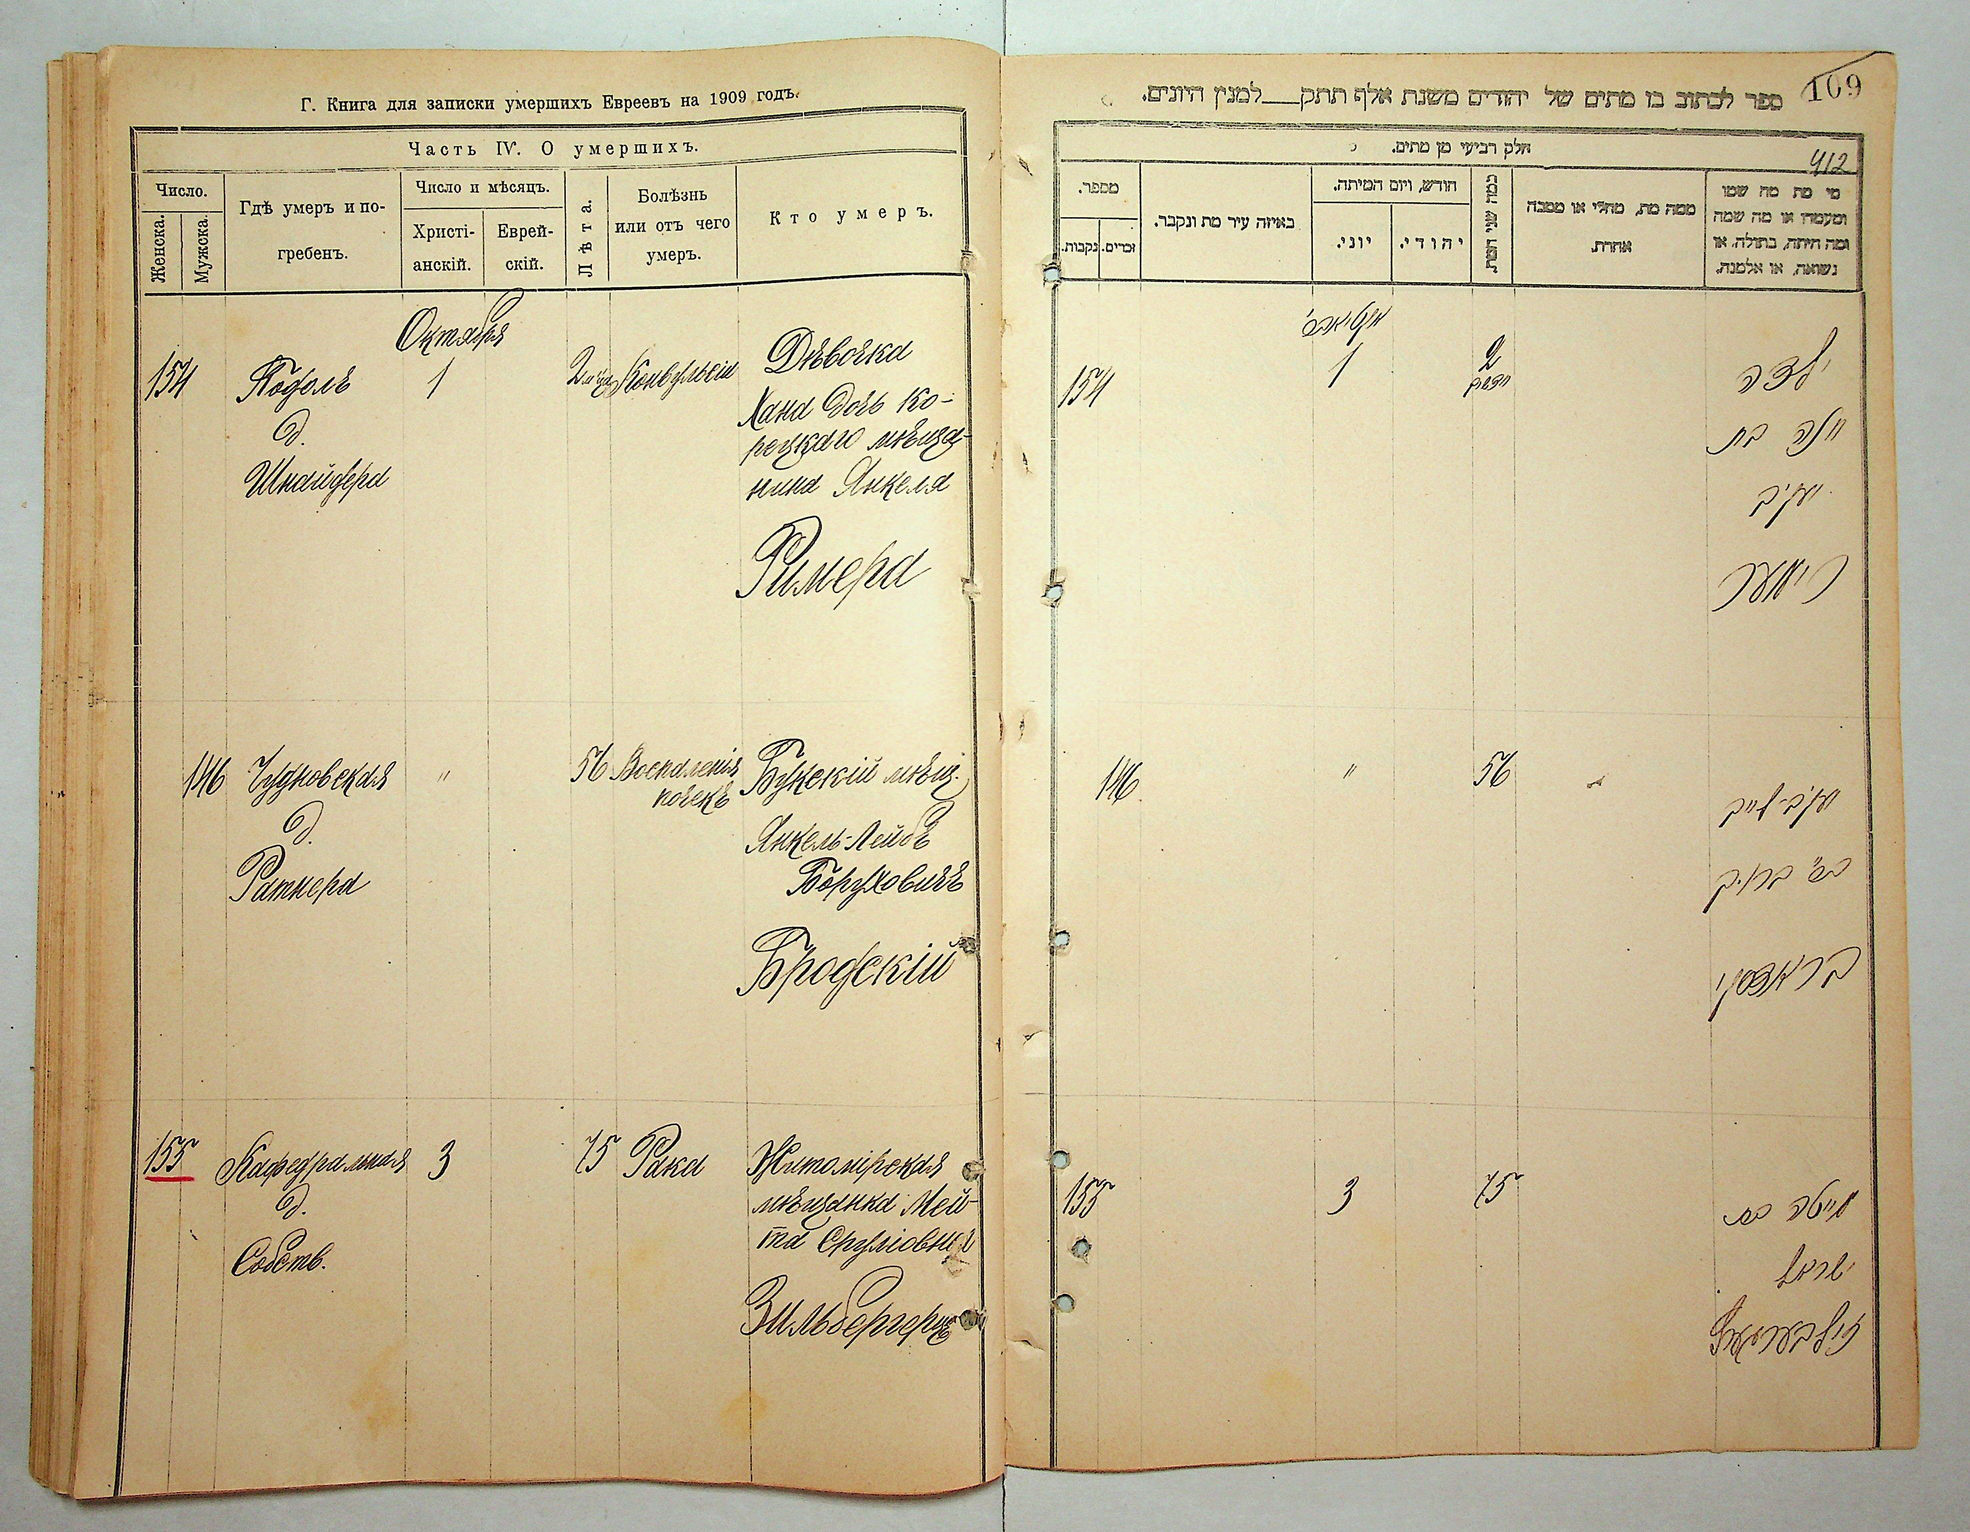 Г. Книга для записки умершихъ Евреевъ на 1909 годъ.
Часть IV. О умершихъ.
Число.
Женска.
Мужска.
Гдѣ умеръ и по-
гребенъ.
Число и мѣсяцъ.
Христі-
анскій.
Еврей-
скій.
Лѣта.
Болѣзнь
или отъ чего
умеръ.
Кто умеръ.
Октября
154
Подолъ
д.
Шнайдера
1
2 м-ца
Конвульсіи
Дѣвочка
Хана дочь Ко-
рецкаго мѣща-
нина Янкеля
Римера
146
Чудновская
д.
Ратнера
"
56
Воспаленія
почекъ
Букскій мѣщ.
Янкель-Лейбъ
Боруховичъ
Бродскій
155
Кафедральная
д.
Собств.
3
75
Рака
Житомірская
мѣщанка Мей-
та Сруліовна
Зильбергерцъ
109
ספר לכתוב בו מתים של יהודים משנת אלף תתק___למנין היונים.
412
חלק רביעי מן מתים.
מי מת מה שמו
ומעמדו או מה שמה
ומה היתה, בתולה, או
נשואה, או אלמנה.
ממה מת, מחלי או מסבה
אחרת.
כמה שני המת.
חודש, ויום המיתה.
יהודי.
יוני.
באיזה עיר מת ונקבר.
מספר.
זכרים.
נקבות.
אקטיאבר
ילדה
חנה בת
יעקב
רימער
2
חדשים
1
154
יעקב לייב
ב"ר ברוך
בראדסקי
56
"
146
מייטה בת
ישראל
זילבערהערץ
75
3
155